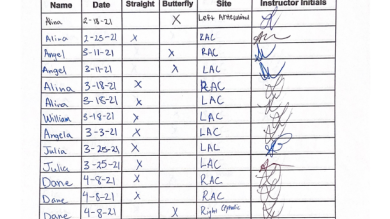 Name Date Straight Butterfly Site Instructor Initials
Alina 2-18-21 X Left
Alina 2-25-21 X RAC
Angel 3-11-21 X RAC
Angel 3-11-21 X LAC
Alina 3-18-21 X RAC
Alina 3-18-21 X LAC
William 3-18-21 X LAC
Angela 3-3-21 X LAC
Julia 3-25-21 X LAC
Julia 3-25-21 X LAC
Dane 4-8-21 X RAC
Dane 4-8-21 X RAC
Dane 4-8-21 X Right